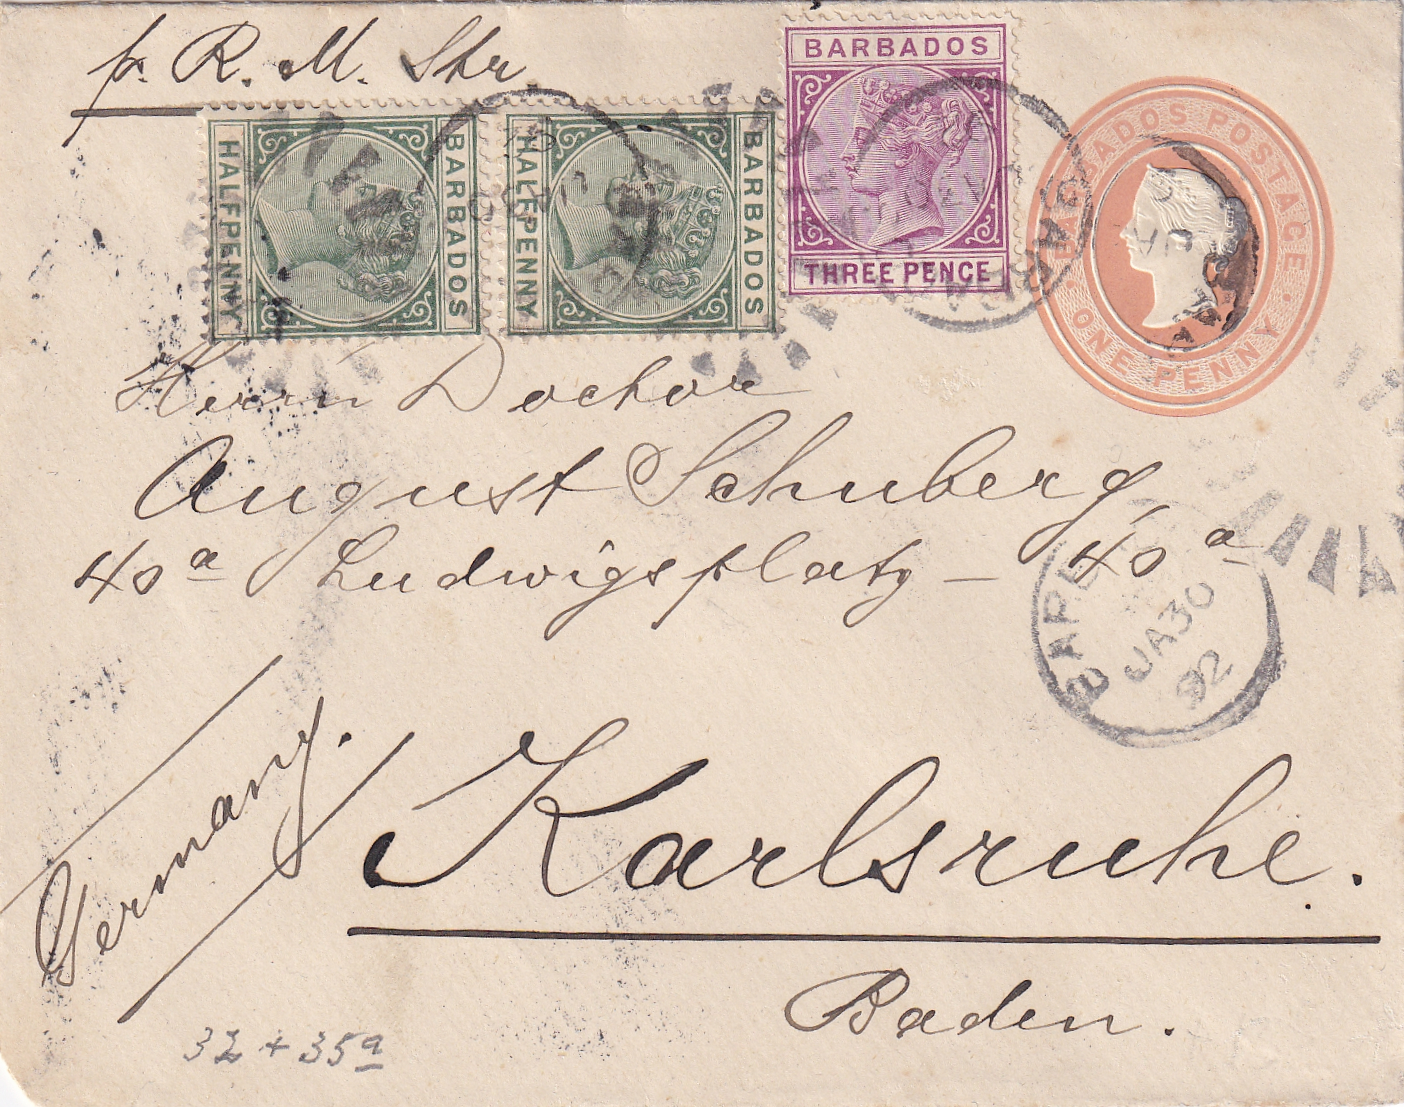 p. R. M. Str
BARBADOS
THREE PENCE
HALFPENNY
BARBADOS
HALFPENNY
BARBADOS
BARBADOS POSTAGE
ONE PENNY
Herrn Doctor
August Schuberg,
40a Ludwigsplatz – 40a
BARB
JA 30
92
Germany.
Karlsruhe.
Baden.
32 + 35a